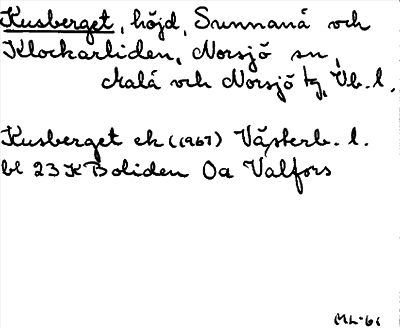 Kusberget, höjd, Sunnanå och
Klockarliden, Norsjö sn,
Malå och Norsjö tg, Vb. l.
Kusberget ek (1967) Västerb. l.
bl 23 K Boliden 0a Valfors